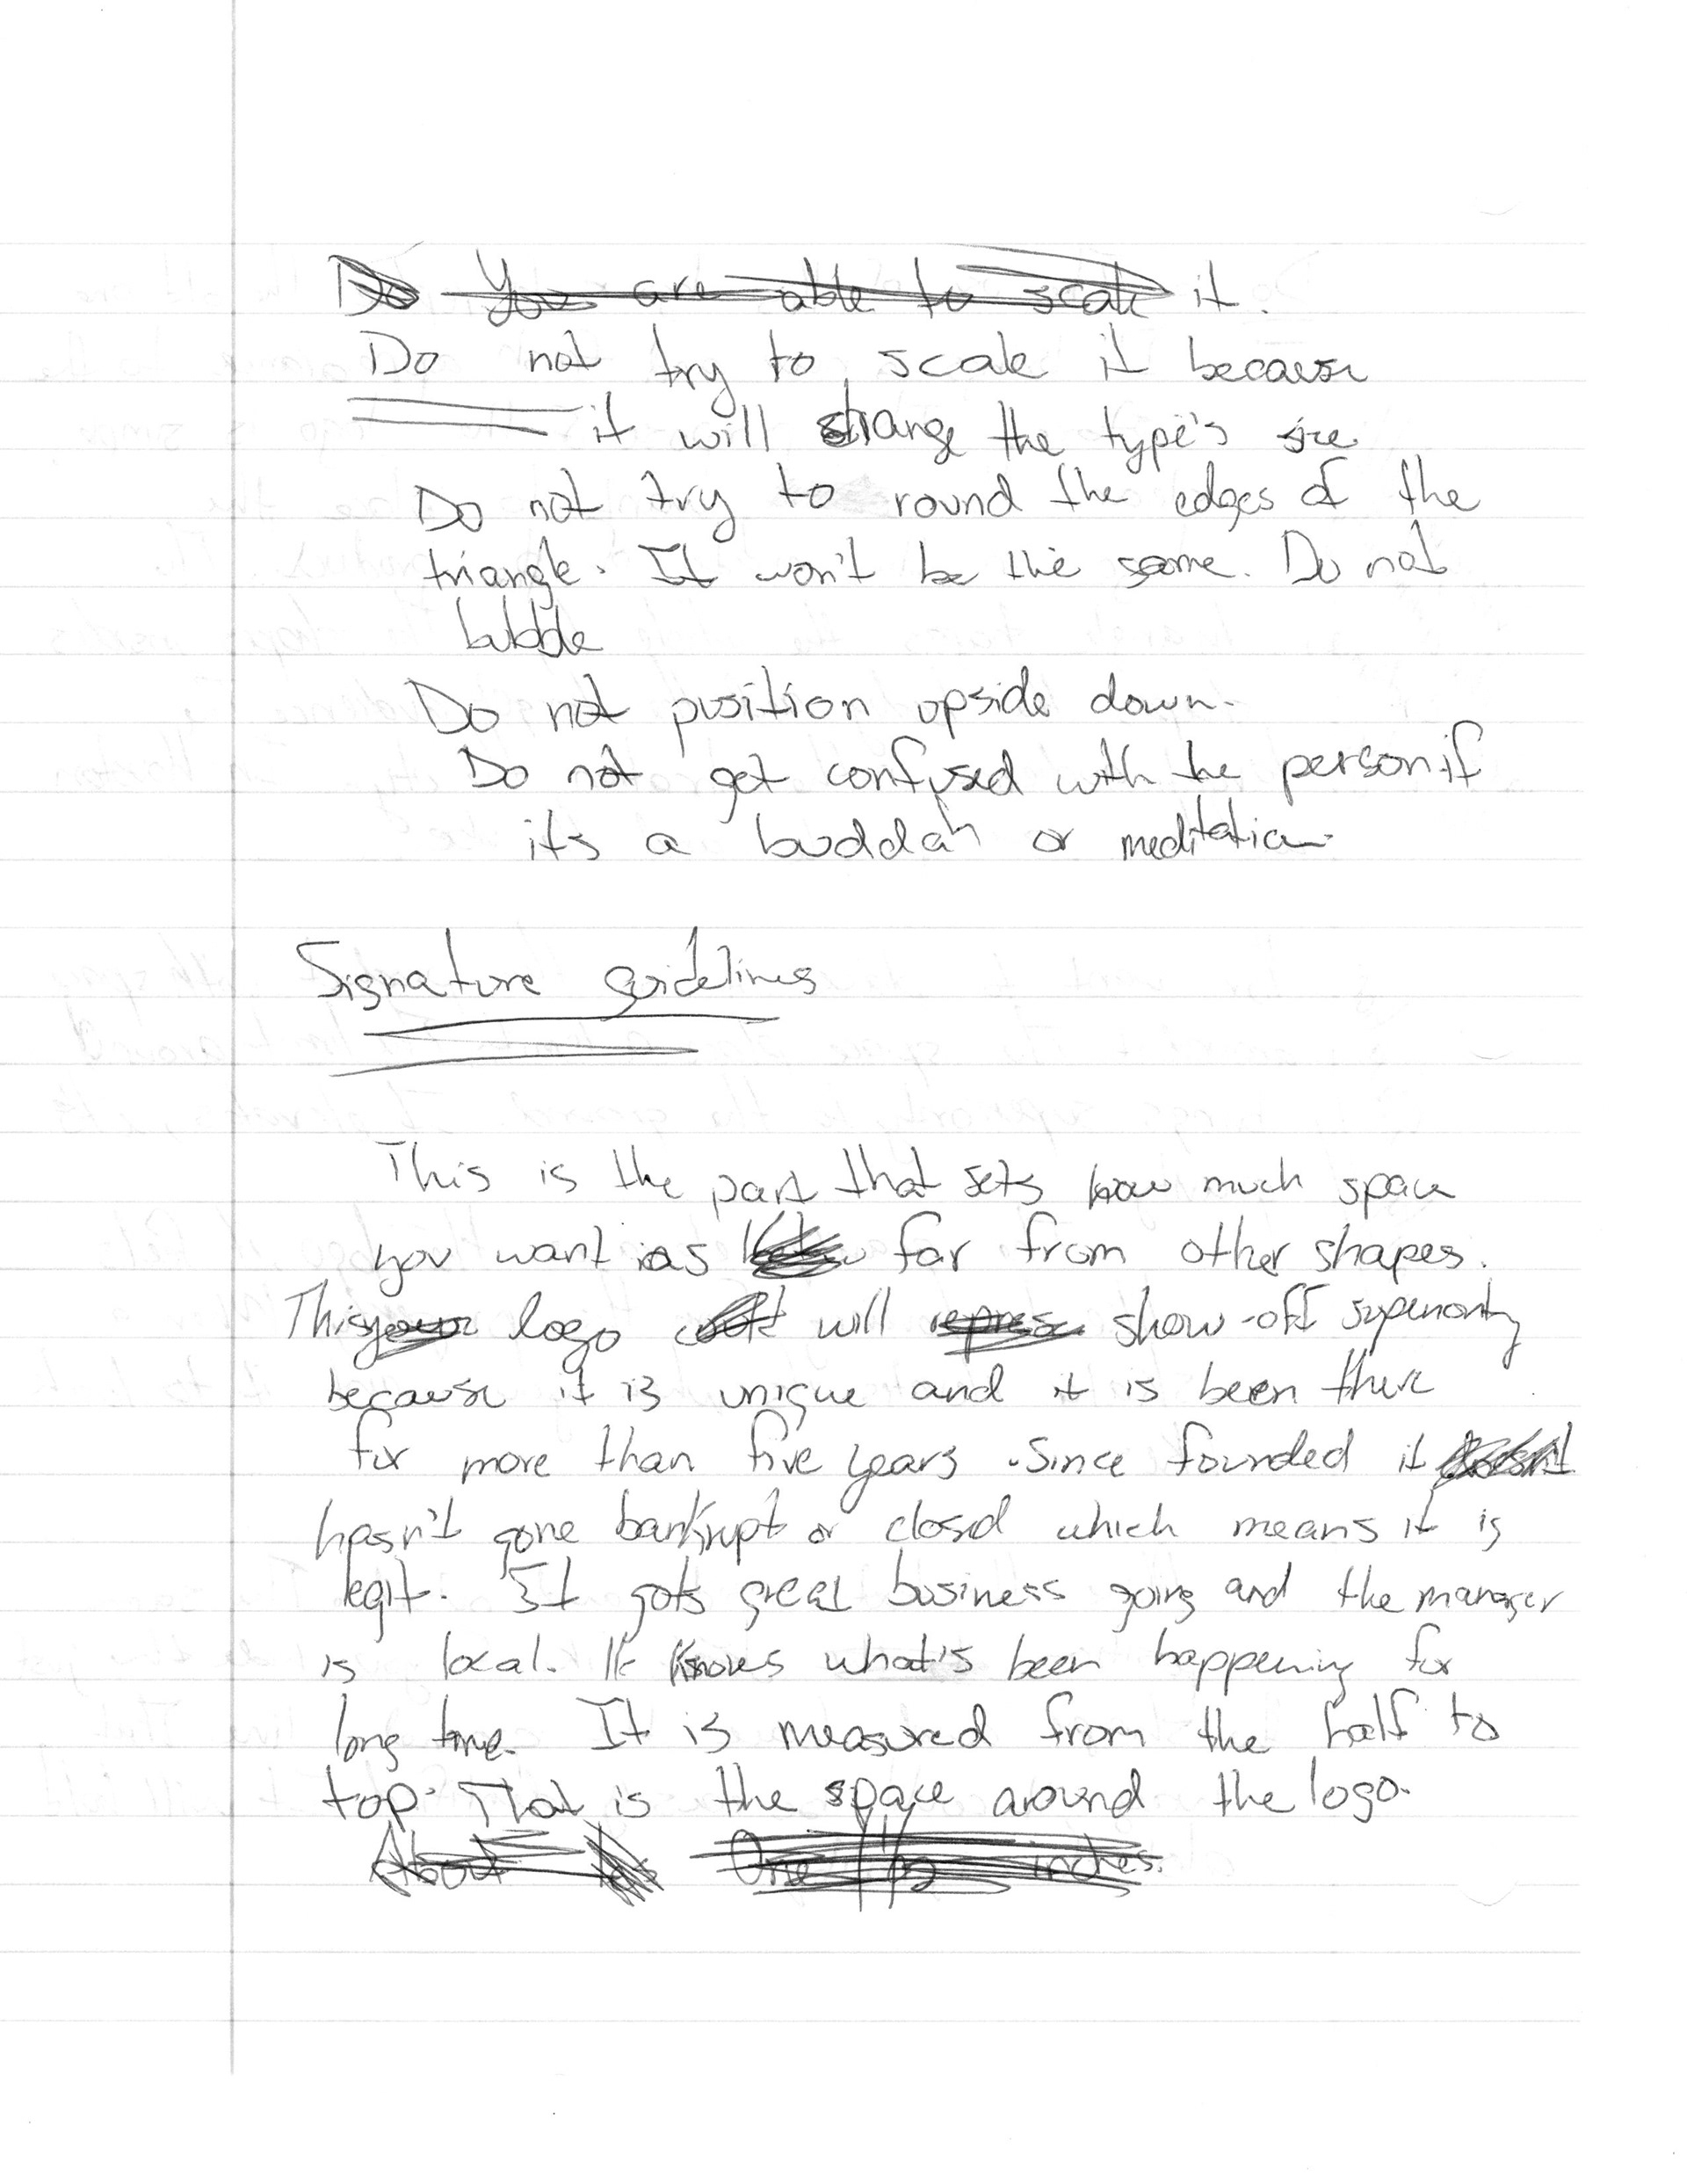 Do You are able to scale it.
Do not try to scale it because
it will change the type's size
Do not try to round the edges of the
triangle. It won't be the same. Do not
bubble
Do not position upside down.
Do not get confused with the person if
its a buddah or meditation
Signature guidelines
This is the part that sets how much space
you want as far from other shapes.
This logo will show-off superiority
because it is unique and it is been there
for more than five years. Since founded it
hasn't gone bankrupt or closed which means it is
legit. It gots great business going and the manager
is local. He knows what's been happening for
long time. It is measured from the half to
top. That is the space around the logo.
About One 1/2 inches.